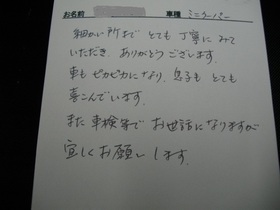 お名前 車種 ミニクーパー
細かい所まで とても 丁寧に みて
いただき、ありがとう ございます。
車も ピカピカに なり、息子も とても
喜こんでいます。
また 車検等で お世話に なりますが
宜しく お願い します。